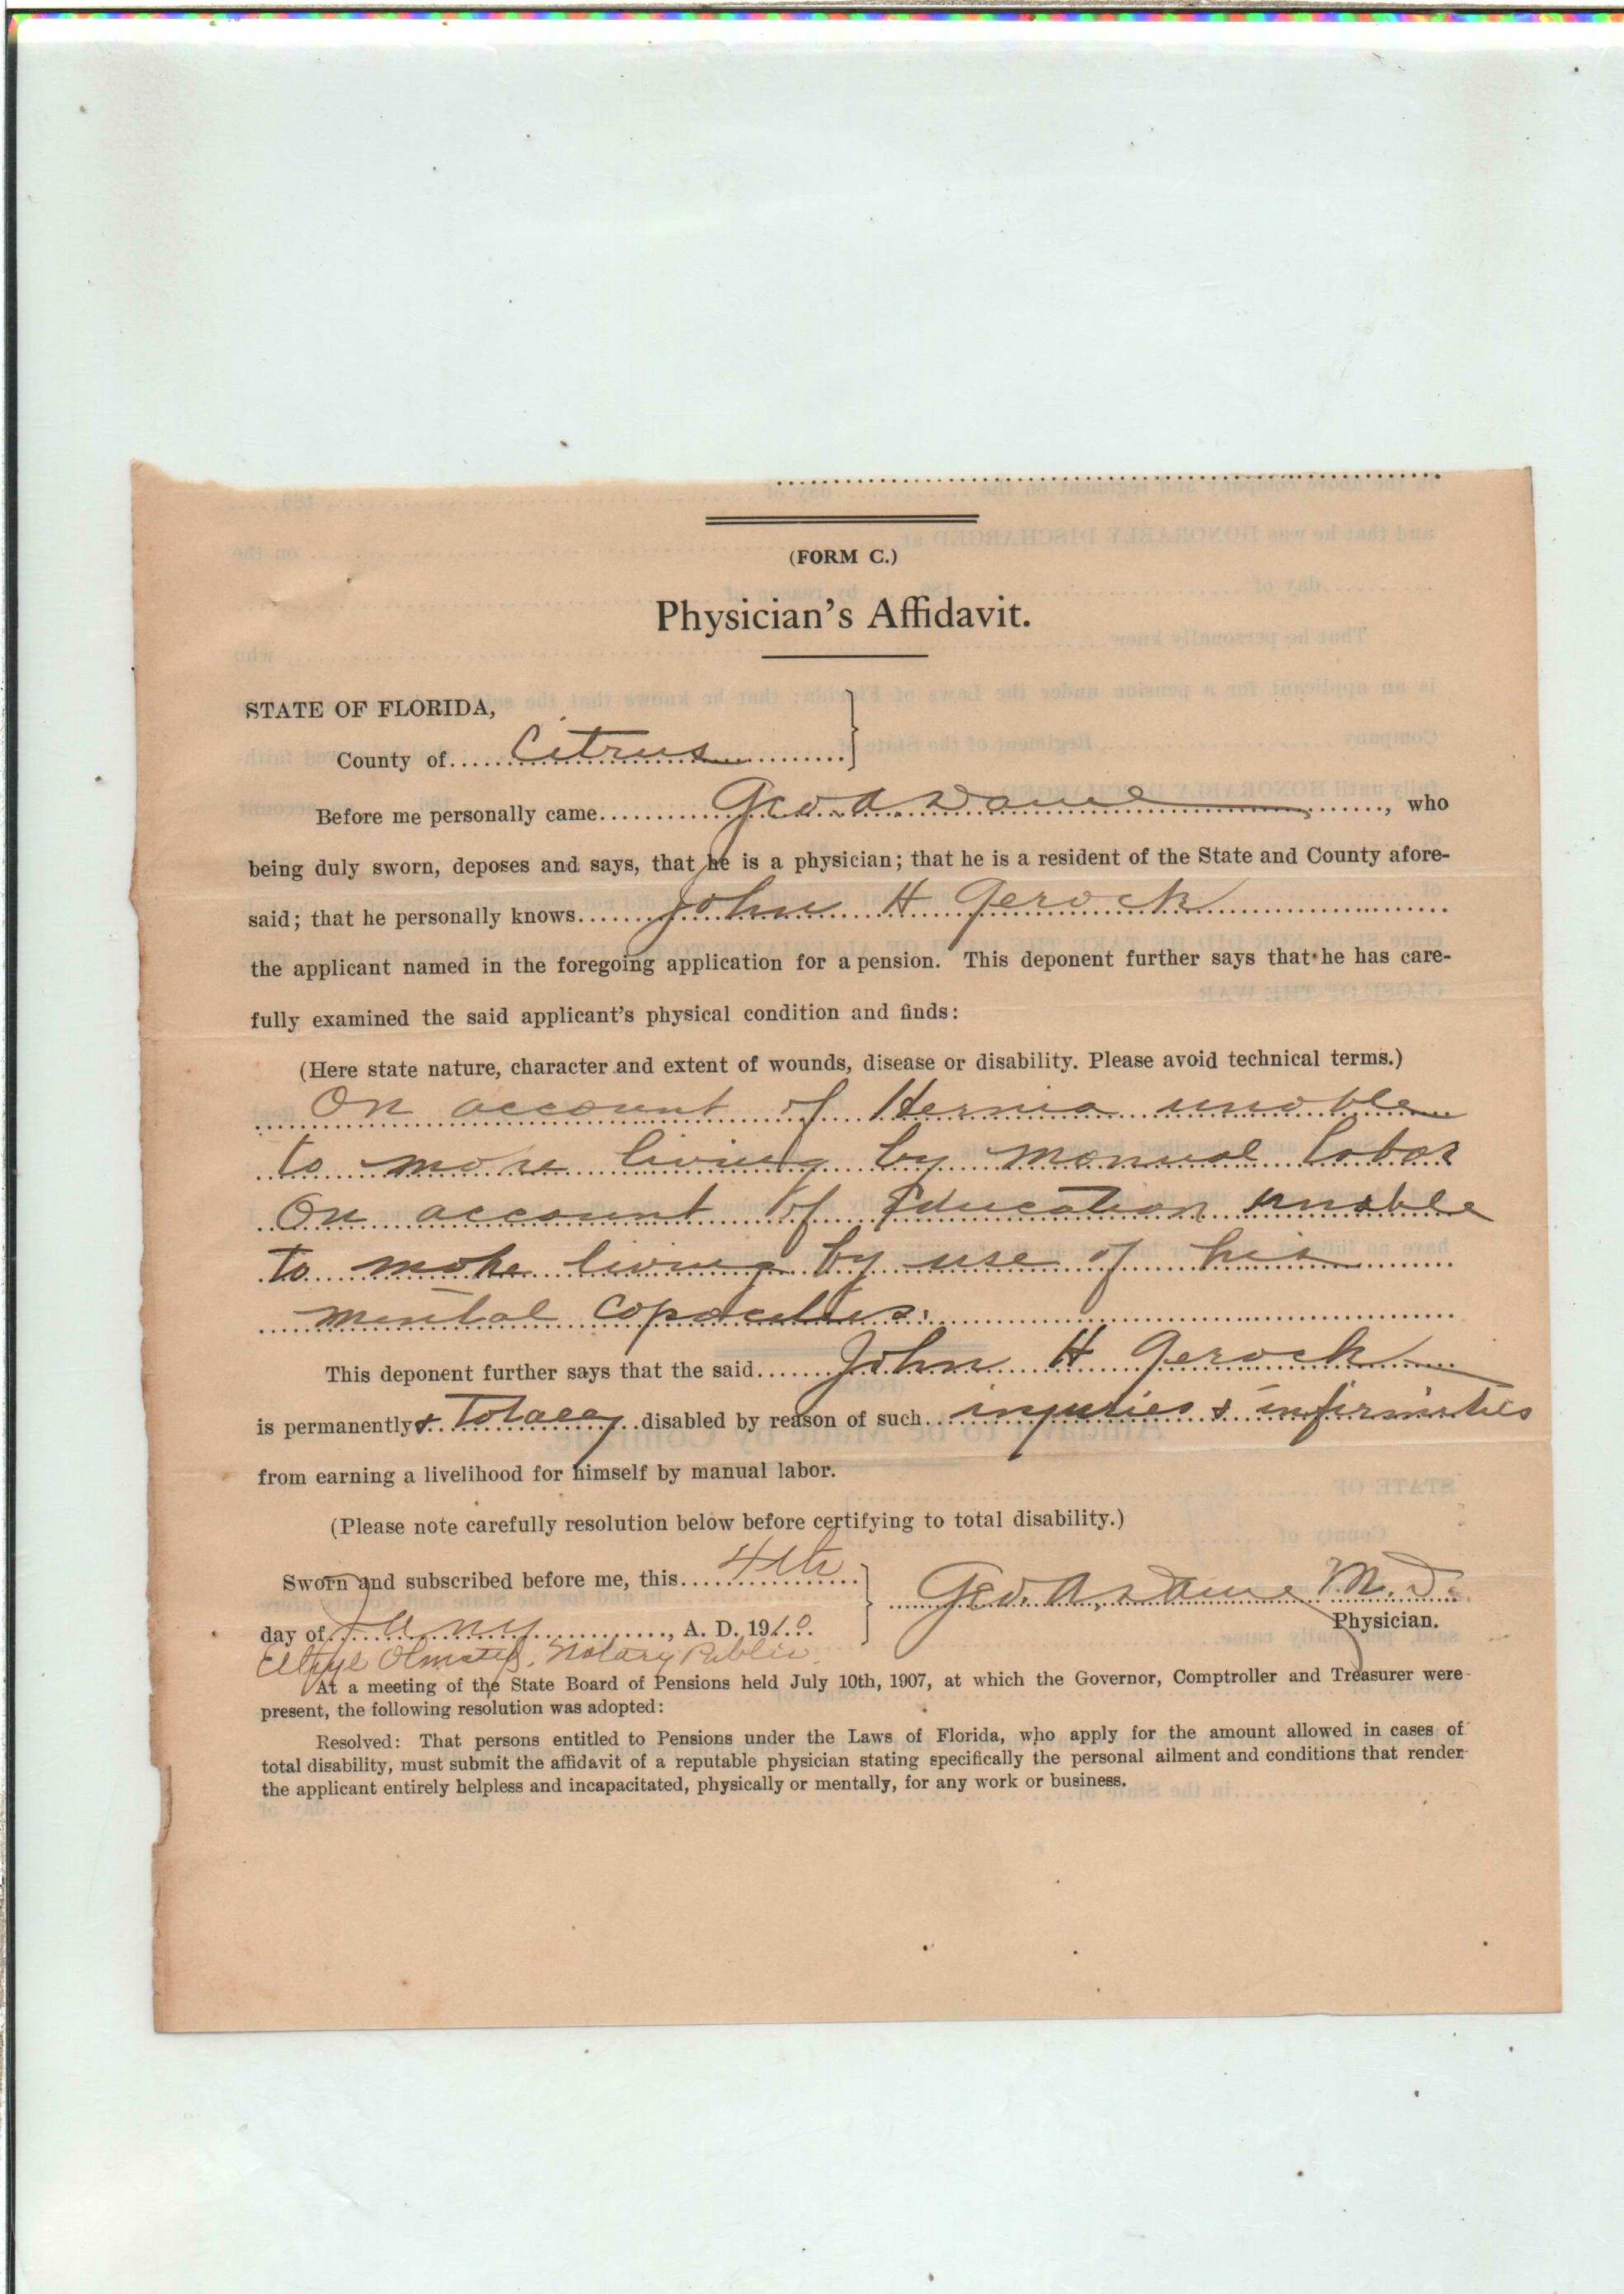 (FORM C.)
Physician's Affidavit.
STATE OF FLORIDA,
County of Citrus
Before me personally came Geo. A. Dame, who
being duly sworn, deposes and says, that he is a physician; that he is a resident of the State and County afore-
said; that he personally knows John H Gerock
the applicant named in the foregoing application for a pension. This deponent further says that he has care-
fully examined the said applicant's physical condition and finds:
(Here state nature, character and extent of wounds, disease or disability. Please avoid technical terms.)
On account of Hernia unable
to make living by manual labor
On account of Education unable
to make living by use of his
mental capacities.
This deponent further says that the said John H Gerock
is permanently & Totaly disabled by reason of such injuries & infirmities
from earning a livelihood for himself by manual labor.
(Please note carefully resolution below before certifying to total disability.)
Sworn and subscribed before me, this 4th
day of Jany, A. D. 1910.
Geo. A. Dame M. D.
Physician.
Notary Public.
At a meeting of the State Board of Pensions held July 10th, 1907, at which the Governor, Comptroller and Treasurer were
present, the following resolution was adopted:
Resolved: That persons entitled to Pensions under the Laws of Florida, who apply for the amount allowed in cases of
total disability, must submit the affidavit of a reputable physician stating specifically the personal ailment and conditions that render
the applicant entirely helpless and incapacitated, physically or mentally, for any work or business.